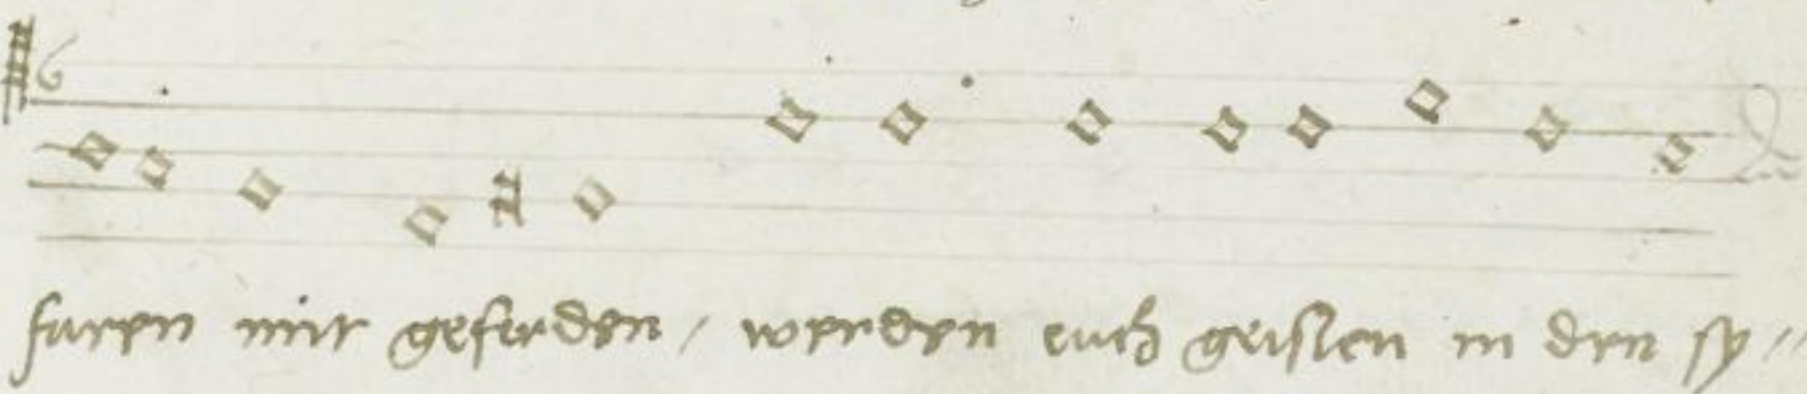 faren mit geferden / werden euch geisten in den sy //